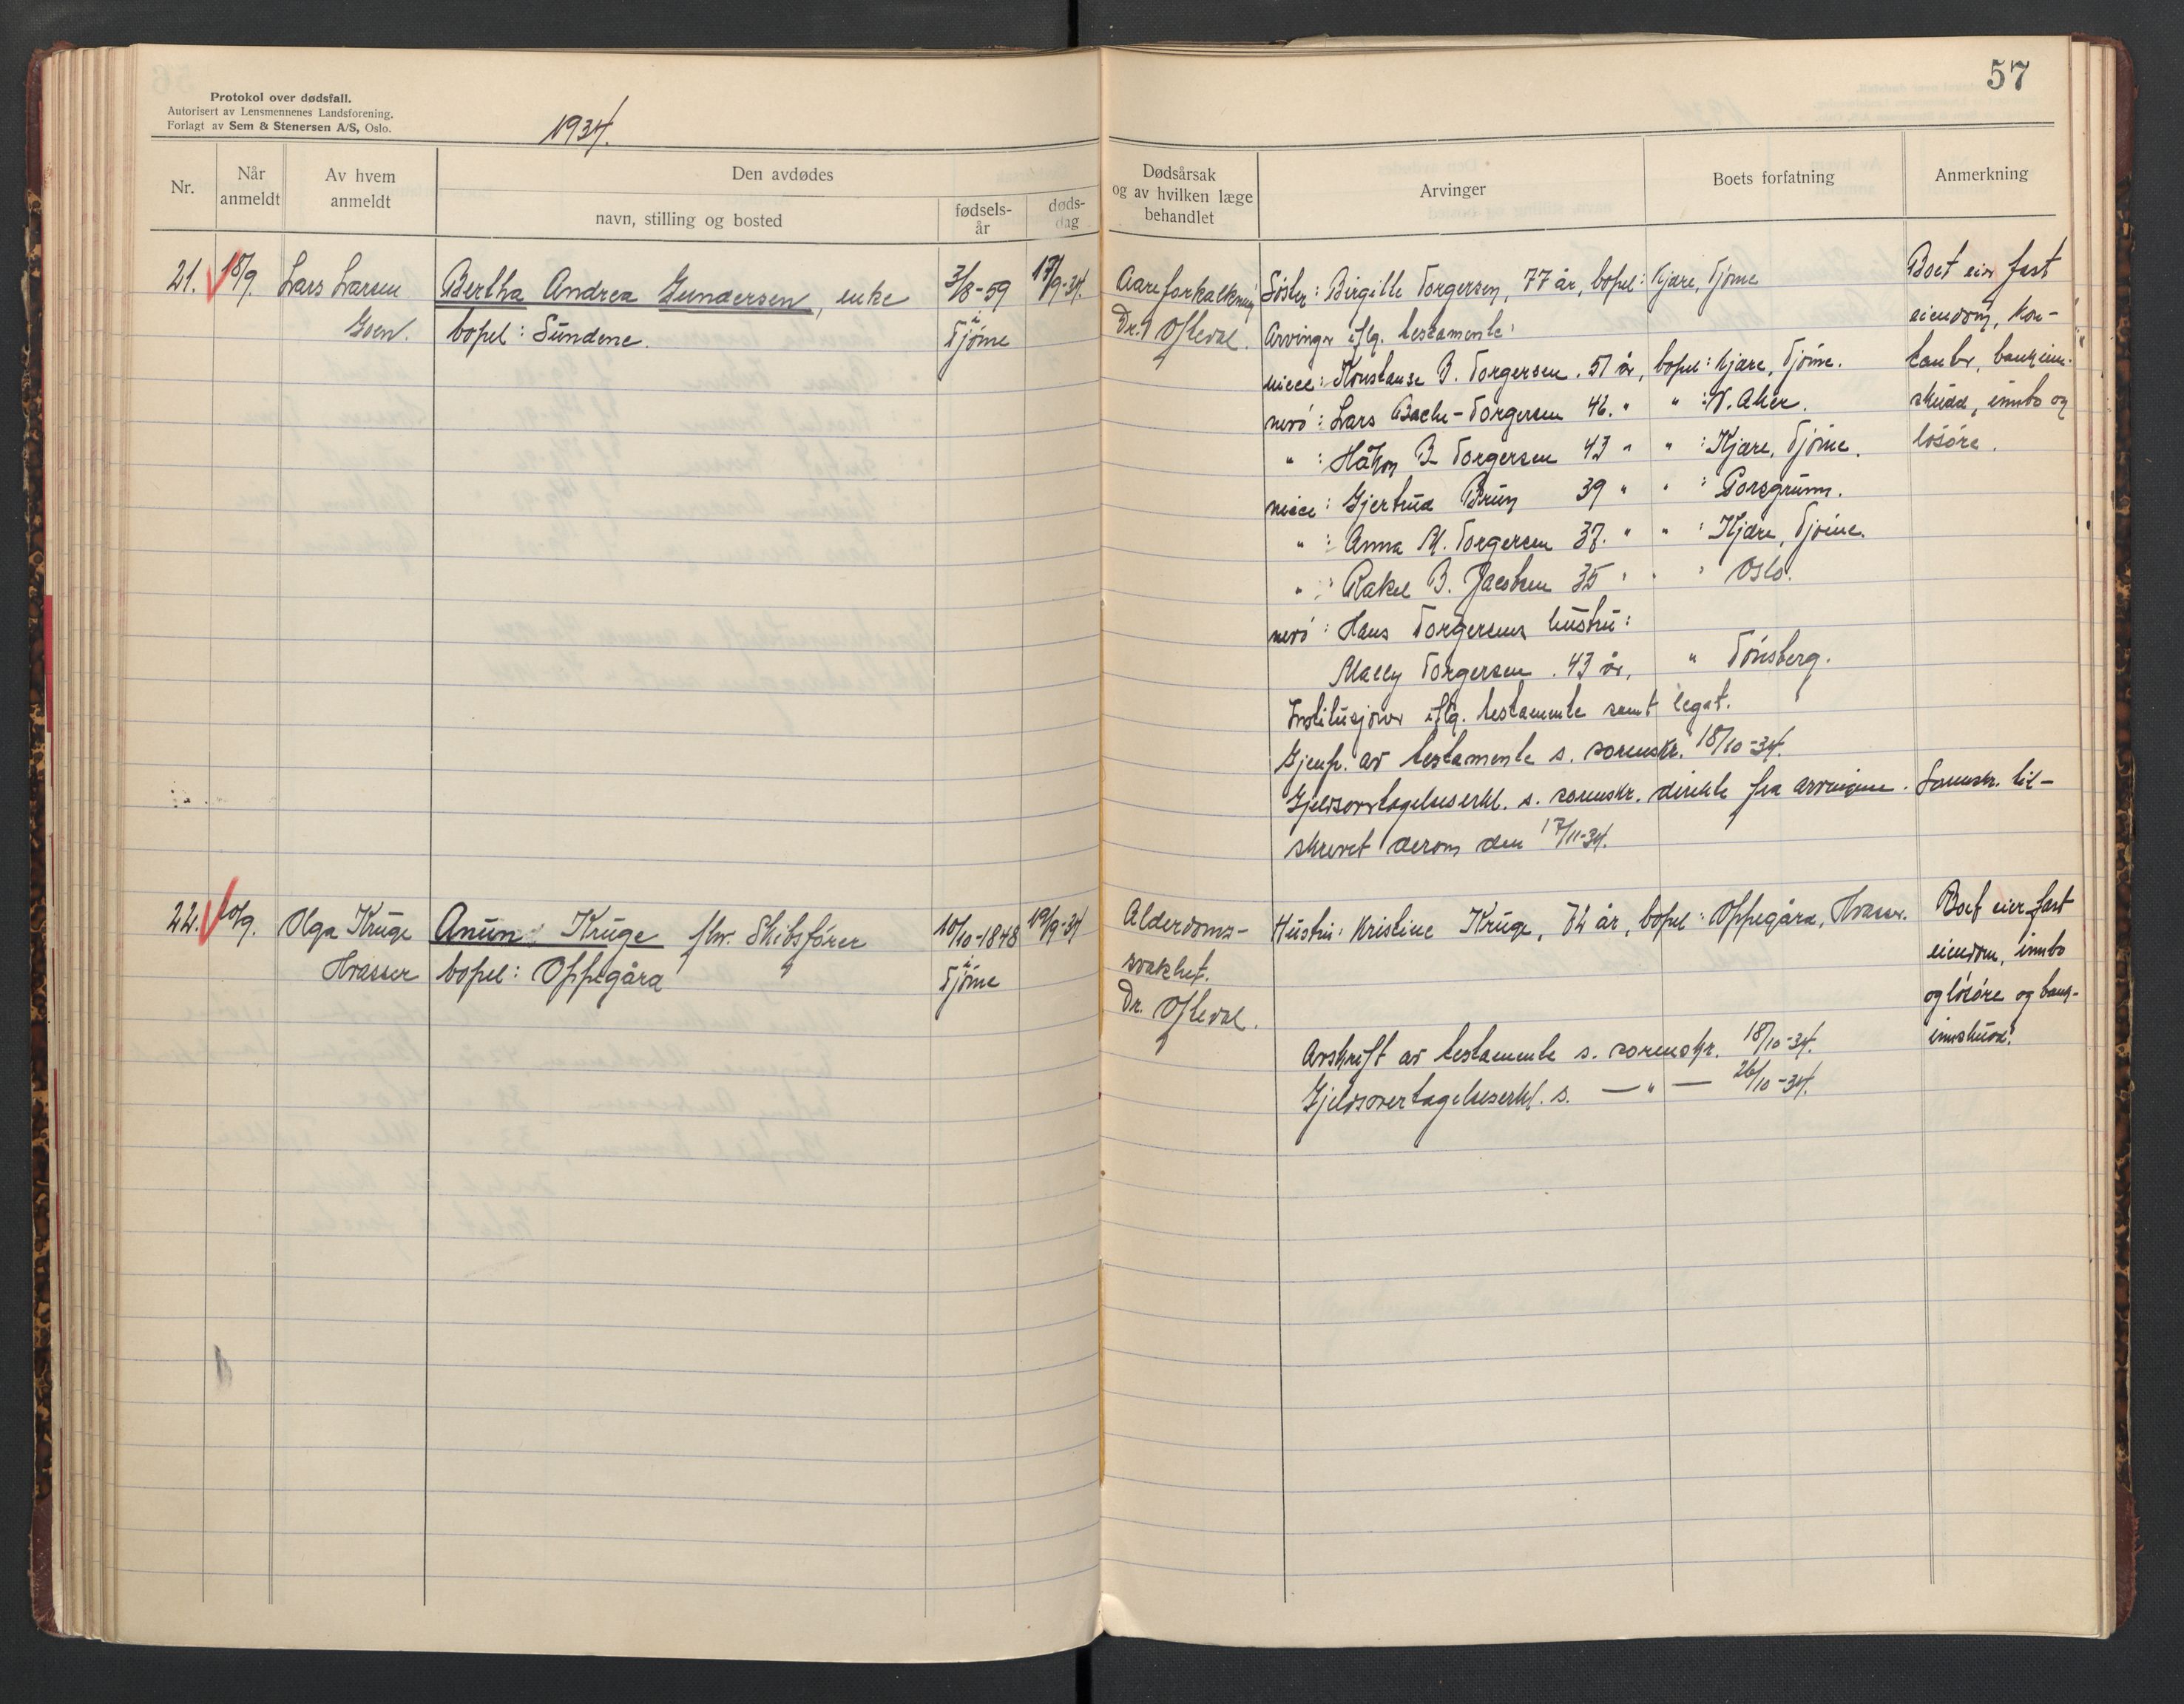 57
Protokol over dødsfall.
Autorisert av Lensmennenes Landsforening.
Forlagt av Sem & Stenersen A/S, Oslo.
1934.
Nr.
Når anmeldt
Av hvem anmeldt
Den avdødes
navn, stilling og bosted
fødsels-år
døds-dag
Dødsårsak og av hvilken læge behandlet
Arvinger
Boets forfatning
Anmerkning
21. 18/9. Lars Larsen Bertha Andrea Gundersen, enke 3/8-59 17/9-34.
bopel: Sundene. i Tjøme
Aareforkalkning
Dr. Ofteval.
Søster: Birgitte Torgersen, 77 år, bopel: Kjære, Tjøme
Arvinger iflg. testamente:
niece: Konstanse B. Torgersen. 51 år, bopel: Kjære, Tjøme.
nevø: Lars Bache-Torgersen 46. " " : V. Aker.
" : Håkon B Torgersen 43 " " : Kjære, Tjøme.
niece: Gjertrud Bruun 39 " " : Porsgrunn.
" : Anna M. Torgersen 37. " " : Kjære, Tjøme.
" : Rakel B. Jacobsen 35 " " " Oslo.
nevø: Hans Torgersens hustru:
Mally Torgersen. 43 år, " Tønsberg.
Institusjoner iflg. testamente samt legat.
Gjenp. av testamente s. sorenskr. 18/10-34.
Gjeldsovertagelseserkl. s. sorenskr. direkte fra arvingene. Sorenskr. til-
skrevet derom den 17/11-34.
Boet eier fast
eiendom, kon-
tanter, bankinn-
skudd, innbo og
løsøre.
22. 20/9. Olga Kruge Anun Kruge fhv. Skibsfører 10/10-1848 19/9-34
Hvasser bopel: Oppegård i Tjøme
Alderdoms-
svakhet.
Dr. Ofteval.
Hustru: Kristine Kruge, 72 år, bopel: Oppegård, Hvasser.
Avskrift av testamente s. sorenskr. 18/10-34.
Gjeldsovertagelseserkl. s. — " — 26/10-34.
Boet eier fast
eiendom, innbo
og løsøre og bank-
innskudd.